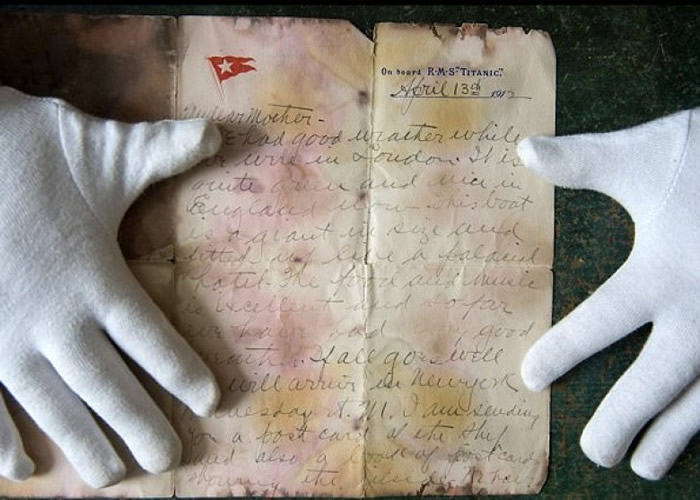 On board R·M·S "TITANIC".
April 13th 1912
My dear Mother-
We had good weather while
we were in London. It is
quite green and nice in
England now. This boat
is a giant in size and
fitted up like a palacial
hotel. The food and music
is excellent and so far
we have had very good
weather. If all goes well
will arrive in New York
Wednesday A.M. I am sending
you a post card of the ship
and also a book of post cards
showing the inside